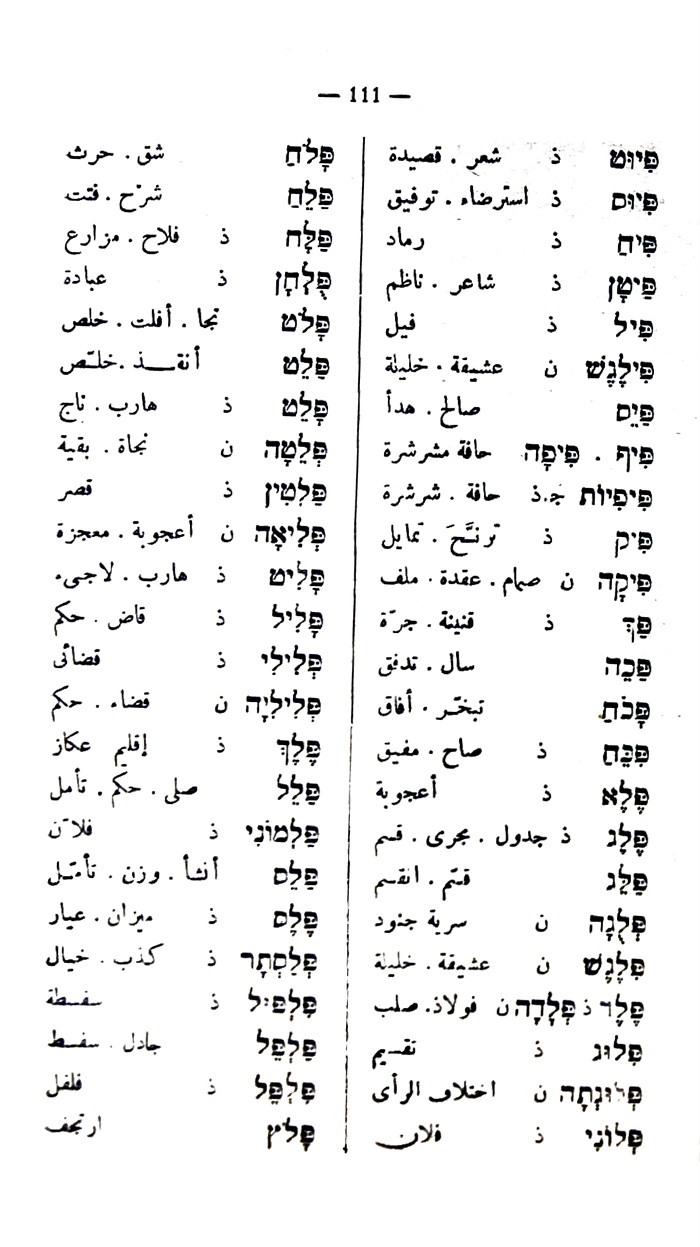 — 111 —
פִּיּוּט ذ شعر . قصيدة
פִּיּוּס ذ استرضاء . توفيق
פִּיחַ ذ رماد
פַּיְטָן ذ شاعر . ناظم
פִּיל ذ فيل
פִּילֶגֶשׁ ن عشيقة . خليلة
פַּיֵּס صالح . هدأ
פִּיף . פִּיפָה حافة مشرشرة
פִּיפִיּוֹת ج.ذ حافة . شرشرة
פִּיק ذ ترنَّحَ . تمايل
פִּיקָה ن صمام . عقدة . ملف
פַּךְ ذ قنينة . جرّة
פַּכֵה سال . تدفق
פָּכֹחַ تبخّر . أفاق
פִּכֵּחַ ذ صاح . مفيق
פֶּלֶא ذ أعجوبة
פֶּלֶג ذ جدول . مجرى . قسم
פַּלֵּג قسّم . انقسم
פְּלֻגָּה ن سرية جنود
פִּלֶגֶשׁ ن عشيقة . خليلة
פֶּלֶד ذ פְּלָדָה ن فولاذ . صلب
פִּלּוּג ذ تقسيم
פְּלוּגְתָה ن اختلاف الرأى
פְּלוֹנִי ذ فلان
פָּלֹחַ شق . حرث
פַּלֵּחַ شرّح . فتت
פַּלָּח ذ فلاح . مزارع
פֻּלְחָן ذ عبادة
פָּלֹט نجا . أفلت . خلص
פַּלֵּט أنقـــذ . خلّص
פָּלֵט ذ هارب . ناج
פְּלֵטָה ن نجاة . بقية
פַּלְטִין ذ قصر
פְּלִיאָה ن أعجوبة . معجزة
פָּלִיט ذ هارب . لاجىء
פָּלִיל ذ قاض . حكم
פְּלִילִי ذ قضائى
פְּלִילִיָּה ن قضاء . حكم
פֶּלֶךְ ذ إقليم عكاز
פַּלֵּל صلى . حكم . تأمل
פַּלְמוֹנִי ذ فلان
פַּלֵּס أنشأ . وزن . تأمّل
פֶּלֶס ذ ميزان . عيار
פְּלַסְתֵּר ذ كذب . خيال
פִּלְפּוּל ذ سفسطة
פַּלְפֵּל جادل . سفسط
פִּלְפֵּל ذ فلفل
פָּלֹץ ارتجف